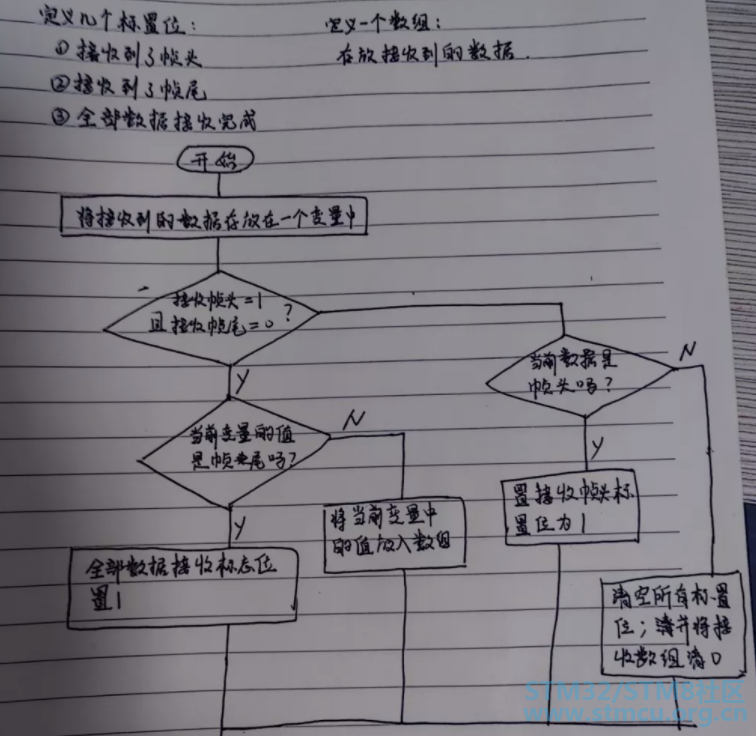 定义几个标置位：
①接收到了帧头
②接收到了帧尾
③全部数据接收完成
定义一个数组：
存放接收到的数据.
开始
将接收到的数据存放在一个变量中
接收帧头=1
且接收帧尾=0？
Y
当前数据是
帧头吗？
N
当前变量的值
是帧尾吗？
N
Y
Y
置接收帧头标
置位为1
将当前变量中
的值放入数组
全部数据接收标志位
置1
清空所有标置
位；并将接
收数组清0
STM32/STM8社区
www.stmcu.org.cn